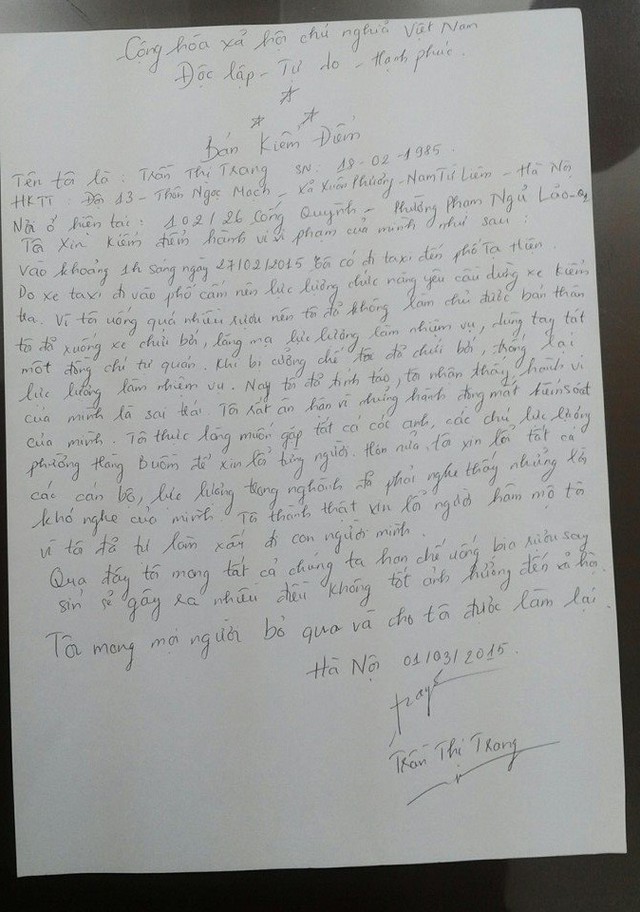 Cộng hóa xả hội chủ nghiã Việt Nam
Độc lập - Tự do - Hạnh phúc.
Bản Kiểm Điểm
Tên tôi là : Trần Thị Trang SN: 18-02-1985.
HKTT : Đội 13 - Thôn Ngọc Mạch - Xã Xuân Phương - Nam Từ Liêm - Hà Nội
Nơi ở hiện tại : 102/26 Cống Quỳnh - Phường Phạm Ngũ Lão - Q1
Tôi xin kiểm điểm hành vi vi phạm của mình như sau :
Vào khoảng 1h sáng ngày 27/02/2015 tôi có đi taxi đến phố Tạ Hiện.
Do xe taxi đi vào phố cấm nên lực lượng chức năng yêu cầu dừng xe kiểm
tra. Vì tôi uống quá nhiều rượu nên tôi đã không làm chủ được bản thân
tôi đã xuống xe chửi bới, lăng mạ lực lượng làm nhiệm vụ, dùng tay tát
một đồng chí tự quản. Khi bị cưỡng chế tôi đã chửi bới, chống lại
lực lượng làm nhiệm vụ. Nay tôi đã tỉnh táo, tôi nhận thấy hành vi
của mình là sai trái. Tôi rất ân hận vì những hành động mất kiểm soát
của mình. Tôi thực lòng muốn gặp tất cả các anh, các chú lực lượng
phường Hàng Buồm để xin lỗi từng người. Hơn nữa, tôi xin lỗi tất cả
các cán bộ, lực lượng trong nghành đã phải nghe thấy những lời
khó nghe của mình. Tôi thành thật xin lỗi người hâm mộ tôi
vì tôi đã tự làm xấu đi con người mình.
Qua đây tôi mong tất cả chúng ta hạn chế uống bia rượu say
sỉn sẽ gây ra nhiều điều không tốt ảnh hưởng đến xả hội.
Tôi mong mọi người bỏ qua và cho tôi được làm lại.
Hà Nội 01/03/2015.
Trần Thị Trang